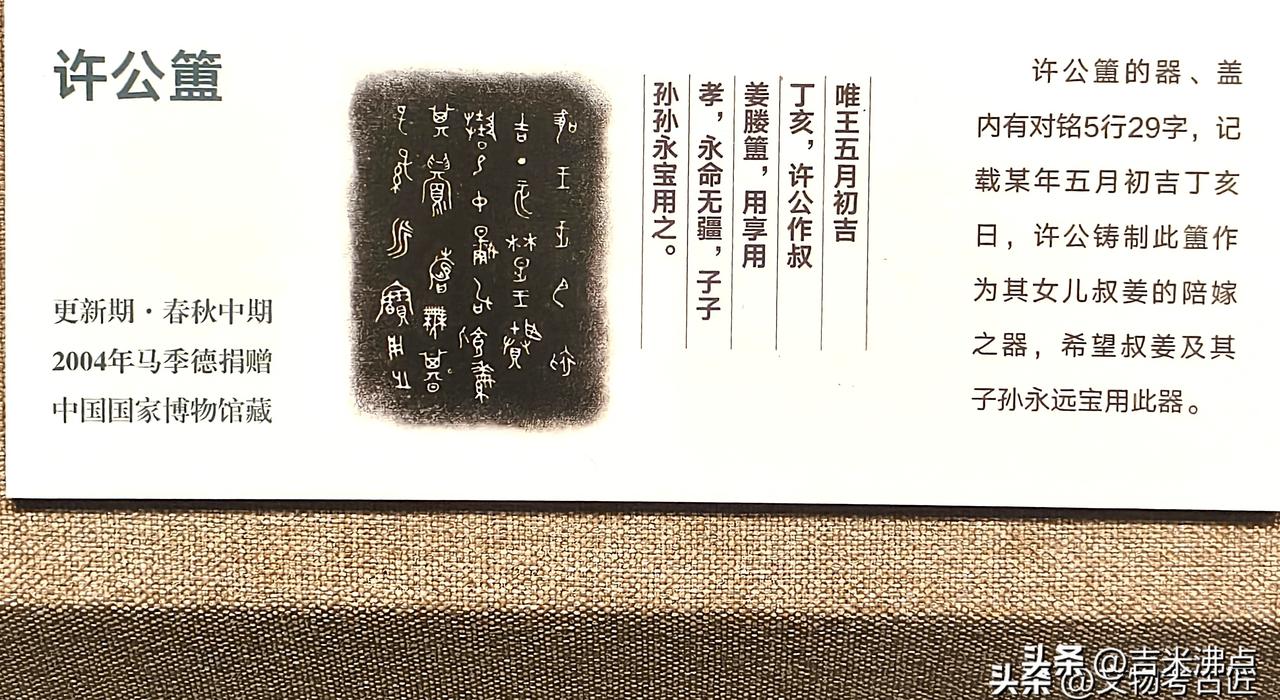 许公簠
更新期·春秋中期
2004年马季德捐赠
中国国家博物馆藏
唯王五月初吉
丁亥，许公作叔
姜媵簠，用享用
孝，永命无疆，子子
孙孙永宝用之。
许公簠的器、盖
内有对铭5行29字，记
载某年五月初吉丁亥
日，许公铸制此簠作
为其女儿叔姜的陪嫁
之器，希望叔姜及其
子孙永远宝用此器。
头条 @吉米沸点
头条 @文物考古匠